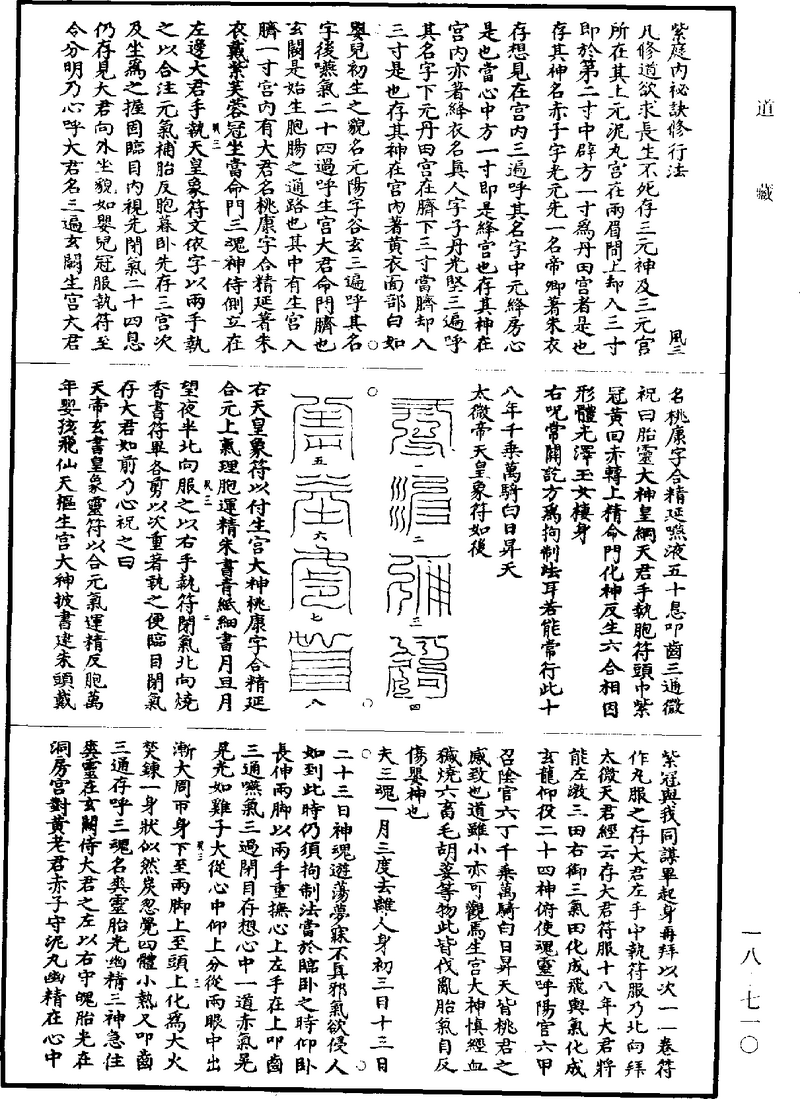 道藏
紫庭內祕訣修行法　風三
凡修道欲求長生不死存三元神及三元宮
所在其上元泥丸宮在兩眉間上却入三寸
即於第二寸中辟方一寸爲丹田宮者是也
存其神名赤子字元先一名帝卿著朱衣
存想見在宮內三遍呼其名字中元絳房心
是也當心中方一寸即是絳宮也存其神在
宮內亦著絳衣名真人字子丹光堅三遍呼
其名字下元丹田宮在臍下三寸當臍却入
三寸是也存其神在宮內著黃衣面部白如
嬰兒初生之貌名元陽字谷玄三遍呼其名
字後嚥氣二十四過呼生宮大君命門臍也
玄闕是始生胞腸之通路也其中有生宮入
臍一寸宮內有大君名桃康字合精延著朱
衣戴紫芙蓉冠坐當命門三魂神侍側立在
左邊大君手執天皇象符文依字以兩手執
之以合注元氣補胎反胞暮卧先存三宮次
及坐爲之握固臨目內視先閉氣二十四息
仍存見大君向外坐貌如嬰兒冠服執符至
令分明乃心呼大君名三遍玄闕生宮大君
名桃康字合精延嚥液五十息叩齒三通微
祝曰胎靈大神皇綱天君手執胞符頭巾紫
冠黃回赤轉上精命門化神反生六合相因
形體光澤玉女棲身
右呪常關訖方爲拘制法耳若能常行此十
八年千乘萬騎白日昇天
太微帝天皇象符如後
一
二
三
四
五
六
七
八
右天皇象符以付生宮大神桃康字合精延
合元上氣理胞運精朱書青紙細書月旦月
望夜半北向服之以右手執符閉氣北向燒
香書符畢各剪以次重著執之便臨目閉氣
存大君如前乃心祝之曰
天帝玄書皇象靈符以合元氣運精反胞萬
年嬰孩飛仙天樞生宮大神披書建朱頭戴
紫冠與我同謀畢起身再拜以次一一卷符
作丸服之存大君左手中執符服乃北向拜
太微天君經云存大君符服十八年大君將
能左激三田右御三氣田化成飛輿氣化成
玄龍仰役二十四神俯使魂靈呼陽官六甲
召陰官六丁千乘萬騎白日昇天皆桃君之
感致也道雖小亦可觀焉生宮大神慎經血
穢燒六畜毛胡荽等物此皆伐亂胎氣自反
傷嬰神也
夫三魂一月三度去離人身初三日十三日
二十三日神魂遊蕩夢寐不真邪氣欲侵人
如到此時仍須拘制法當於臨卧之時仰卧
長伸兩脚以兩手重撫心上左手在上叩齒
三通嚥氣三過閉目存想心中一道赤氣晃
晃光如雞子大從心中仰上分從兩眼中出
漸大周帀身下至兩脚上至頭上化爲大火
焚鍊一身狀似然炭忽覺四體小熱又叩齒
三通存呼三魂名爽靈胎光幽精三神急住
爽靈在玄闕侍大君之左以右守魄胎光在
洞房宮對黃老君赤子守泥丸幽精在心中
一八·七一〇